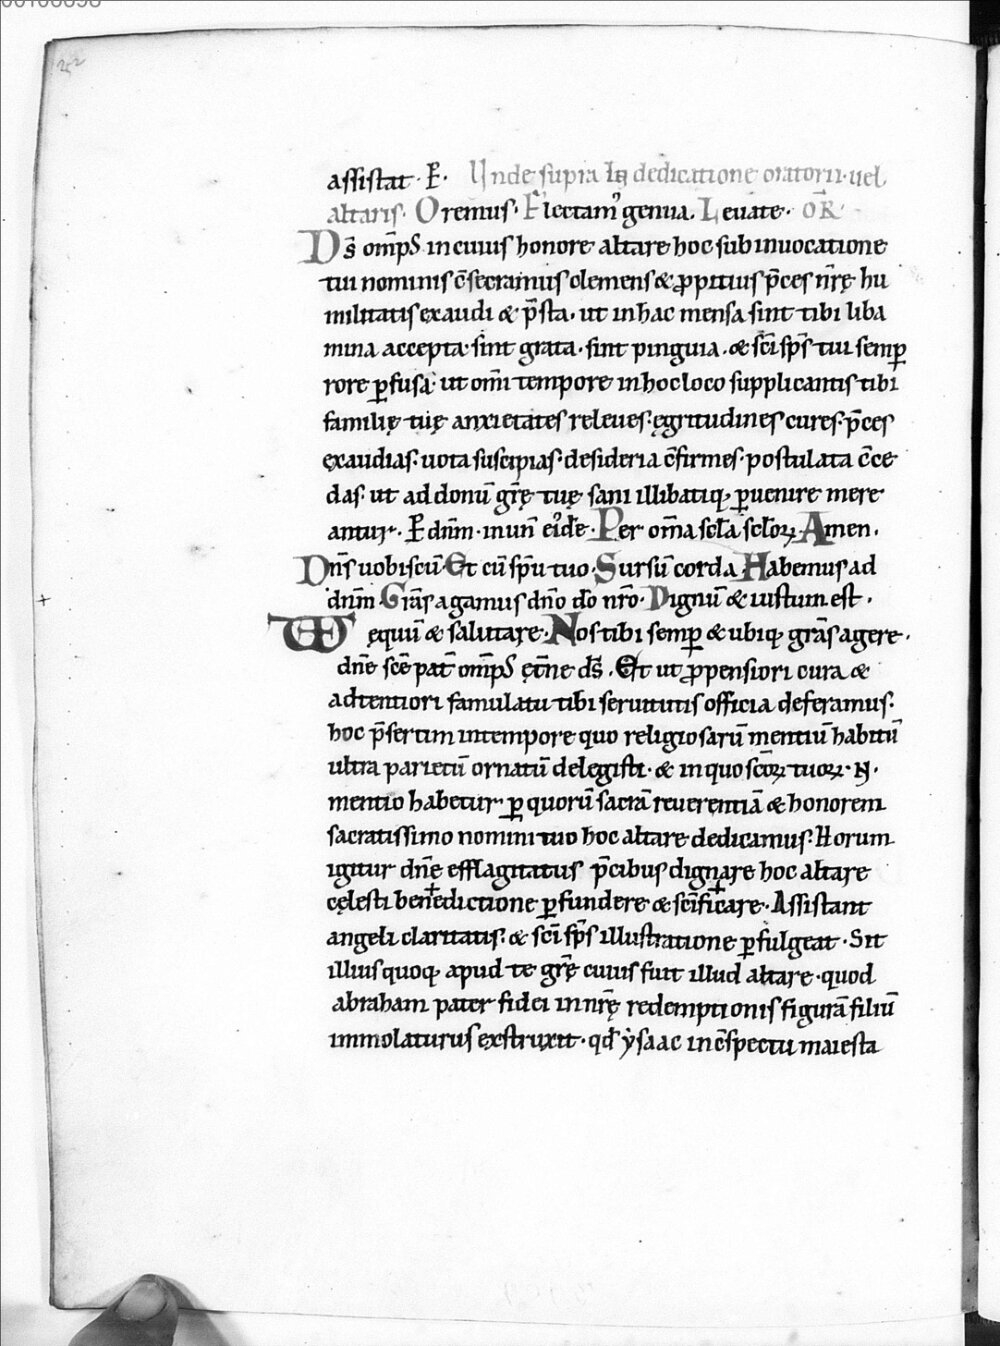 252
assistat · P̱. Unde supra In dedicatione oratorii · uel
altaris. Oremus. Flectam᾽ genua. Leuate. OR̄.
Ds̄ omp̄s in cuius honore altare hoc sub inuocatione
tui nominis c̄secramus clemens & ꝓpitius p̄ces nr̄ę hu
militatis exaudi & p̄sta. ut in hac mensa sint tibi liba
mina accepta · sint grata · sint pinguia . & sc̄i sp̄s tui semꝑ
rore ꝑfusa · ut om̄i tempore in hoc loco supplicantis tibi
familię tuę anxietates releues · ęgritudines cures · p̄ces
exaudias · uota suscipias · desideria c̄firmes · postulata c̄ce
das · ut ad donū gr̄ę tuę sani illibatiq; ꝑuenire mere
antur · P̱ dn̄m · in un̄ ei᾽dē · Per om̄a scl̄a scl̄oꝝ Amen.
Dn̄s uobiscū · Et cū sp̄u tuo · Sursū corda · Habemus ad
dn̄m · Gr̄as agamus dn̄o dō nr̄o · Dignū & iustum est .
VD ęquū & salutare · Nos tibi semꝑ & ubiq; gr̄as agere ·
dn̄e sc̄e pat̄ omp̄s ęt̄ne ds̄ . Et ut ꝓpensiori cura &
adtentiori famulatu tibi seruitutis officia deferamus ·
hoc p̄sertim in tempore quo religiosarū mentiū habitū
ultra parietū ornatū delegisti · & in quo sc̄oꝝ tuoꝝ · N̄ ·
mentio habetur · ꝑ quorū sacrā reuerentiā & honorem
sacratissimo nomini tuo hoc altare dedicamus · Horum
igitur dn̄e efflagitatus p̄cibus dignare hoc altare
cęlesti bene+dictione ꝑfundere & sc̄ifi+care · Assistant
angeli claritatis · & sc̄i sp̄s illustratione ꝑfulgeat · Sit
illius quoq; apud te gr̄ę cuius fuit illud altare · quod
abraham pater fidei in nr̄ę redemptionis figurā filiū
immolaturus exstruxit · qd̄ ẏsaac in c̄spectu maiesta